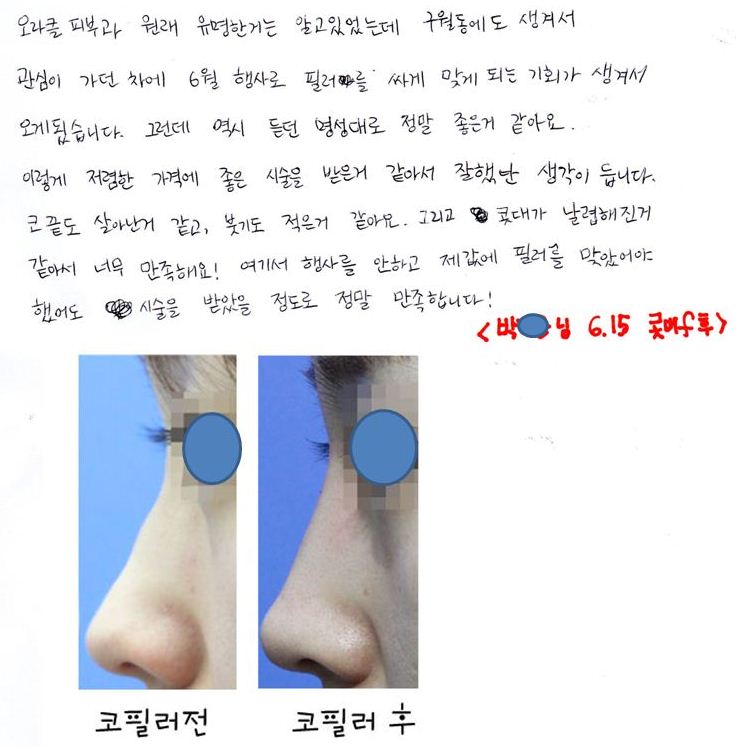 오라클 피부과 원래 유명한거는 알고있었는데 구월동에도 생겨서
관심이 가던 차에 6월 행사로 필러를 싸게 맞게 되는 기회가 생겨서
오게됬습니다. 그런데 역시 듣던 명성대로 정말 좋은거 같아요.
이렇게 저렴한 가격에 좋은 시술을 받은거 같아서 잘했단 생각이 듭니다.
코끝도 살아난거 같고, 붓기도 적은거 같아요. 그리고 콧대가 날렵해진거
같아서 너무 만족해요! 여기서 행사를 안하고 제값에 필러를 맞았어야
했어도 시술을 받았을 정도로 정말 만족합니다!
<박 님 6.15 >
코필러전
코필러 후